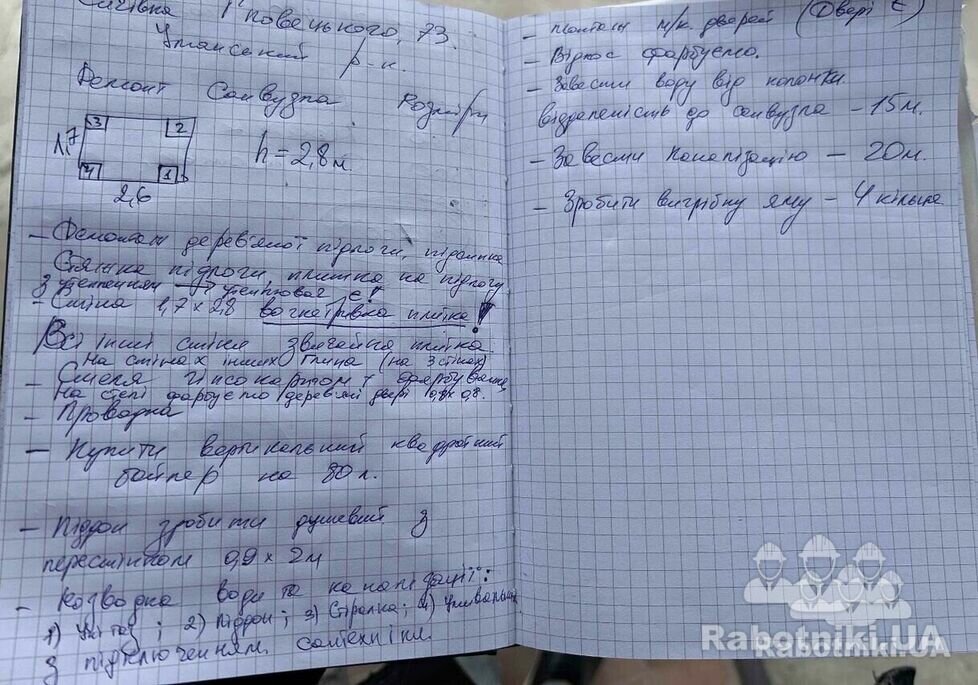 Повецького, 73.
Уманський р-н.
Ремонт Санвузла Розміри
3 2
1,7 h = 2,8 м
4 1
2,6
- Демонтаж дерев'яної підлоги, підсипка
Стяжка підлоги, плитка на підлогу
З утепленням → утеплювач є!
- Стіна 1,7 × 2,8 вогнетривка плитка!
Всі інші стіни звичайна плитка.
На стінах інших глина (на 3 стінах)
- Стеля гіпсокартон + фарбування
На стелі фарбуємо дерев'яні двері 0,8 × 0,8.
- Проводка
- Купити вертикальний квадратний
бойлер на 80 л.
- Піддон зробити душевий з
пересттінком 0,9 × 2 м
- Розводка води та каналізації:
1) Унітаз; 2) Піддон; 3) Стіралка; 4) Умивальник
З підключенням сантехніки.
- Монтаж м/к. дверей (Двері є)
- Відкос фарбуємо.
- Завести воду від колонки
віддаленість до санвузла - 15 м.
- Завести каналізацію - 20 м.
- Зробити вигрібну яму - 4 кільця
Rabotniki.UA
Rabotniki.UA